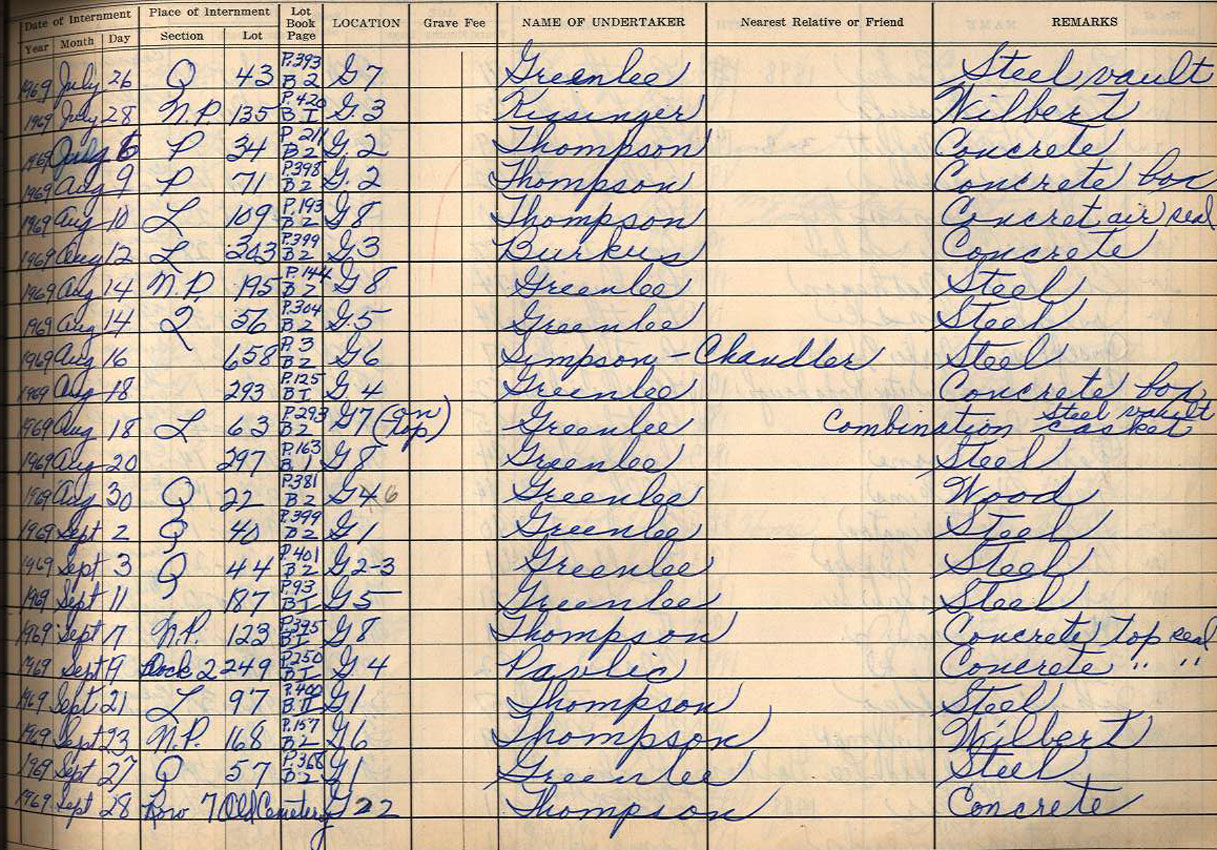 Date of Internment Place of Internment Lot Book Page LOCATION Grave Fee NAME OF UNDERTAKER Nearest Relative or Friend REMARKS
Year Month Day Section Lot
1969 July 26 Q 43 P.393 B 2 G 7 Greenlee Steel vault
1969 July 28 N.P. 135 P.420 B I G.3 Kissinger Wilbert
1969 6 P 34 P.211 B 2 G.2 Thompson Concrete
1969 Aug 9 P 71 P.398 B 2 G.2 Thompson Concrete box
1969 Aug 10 L 109 P.193 B 2 G 8 Thompson Concret air seal
1969 Aug 12 L 303 P.399 B 2 G.3 Burkus Concrete
1969 Aug 14 N.P. 195 P.144 B 2 G 8 Greenlee Steel
1969 Aug 14 Q 56 P.304 B 2 G.5 Greenlee Steel
1969 Aug 16 658 P.3 B 2 G 6 Simpson - Chandler Steel
1969 Aug 18 293 P.125 B I G.4 Greenlee Concrete box
1969 Aug 18 L 63 P.293 B 2 G 7 (on top) Greenlee Combination Steel vault casket
1969 Aug 20 297 P.163 B 1 G 8 Greenlee Steel
1969 Aug 30 Q 22 P.381 B 2 G 4 6 Greenlee Wood
1969 Sept 2 Q 40 P.399 B 2 G 1 Greenlee Steel
1969 Sept 3 Q 44 P.401 B 2 G 2-3 Greenlee Steel
1969 Sept 11 187 P.93 B I G.5 Greenlee Steel
1969 Sept 17 N.P. 123 P.395 B I G 8 Thompson Concrete top seal
1969 Sept 19 2 249 P.250 B I G.4 Pavlic Concrete " "
1969 Sept 21 L 97 P.400 B II G 1 Thompson Steel
1969 Sept 23 N.P. 168 P.157 B 2 G 6 Thompson Wilbert
1969 Sept 27 Q 57 P.366 B 2 G 1 Greenlee Steel
1969 Sept 28 Row 7 Old Cemetery G 22 Thompson Concrete